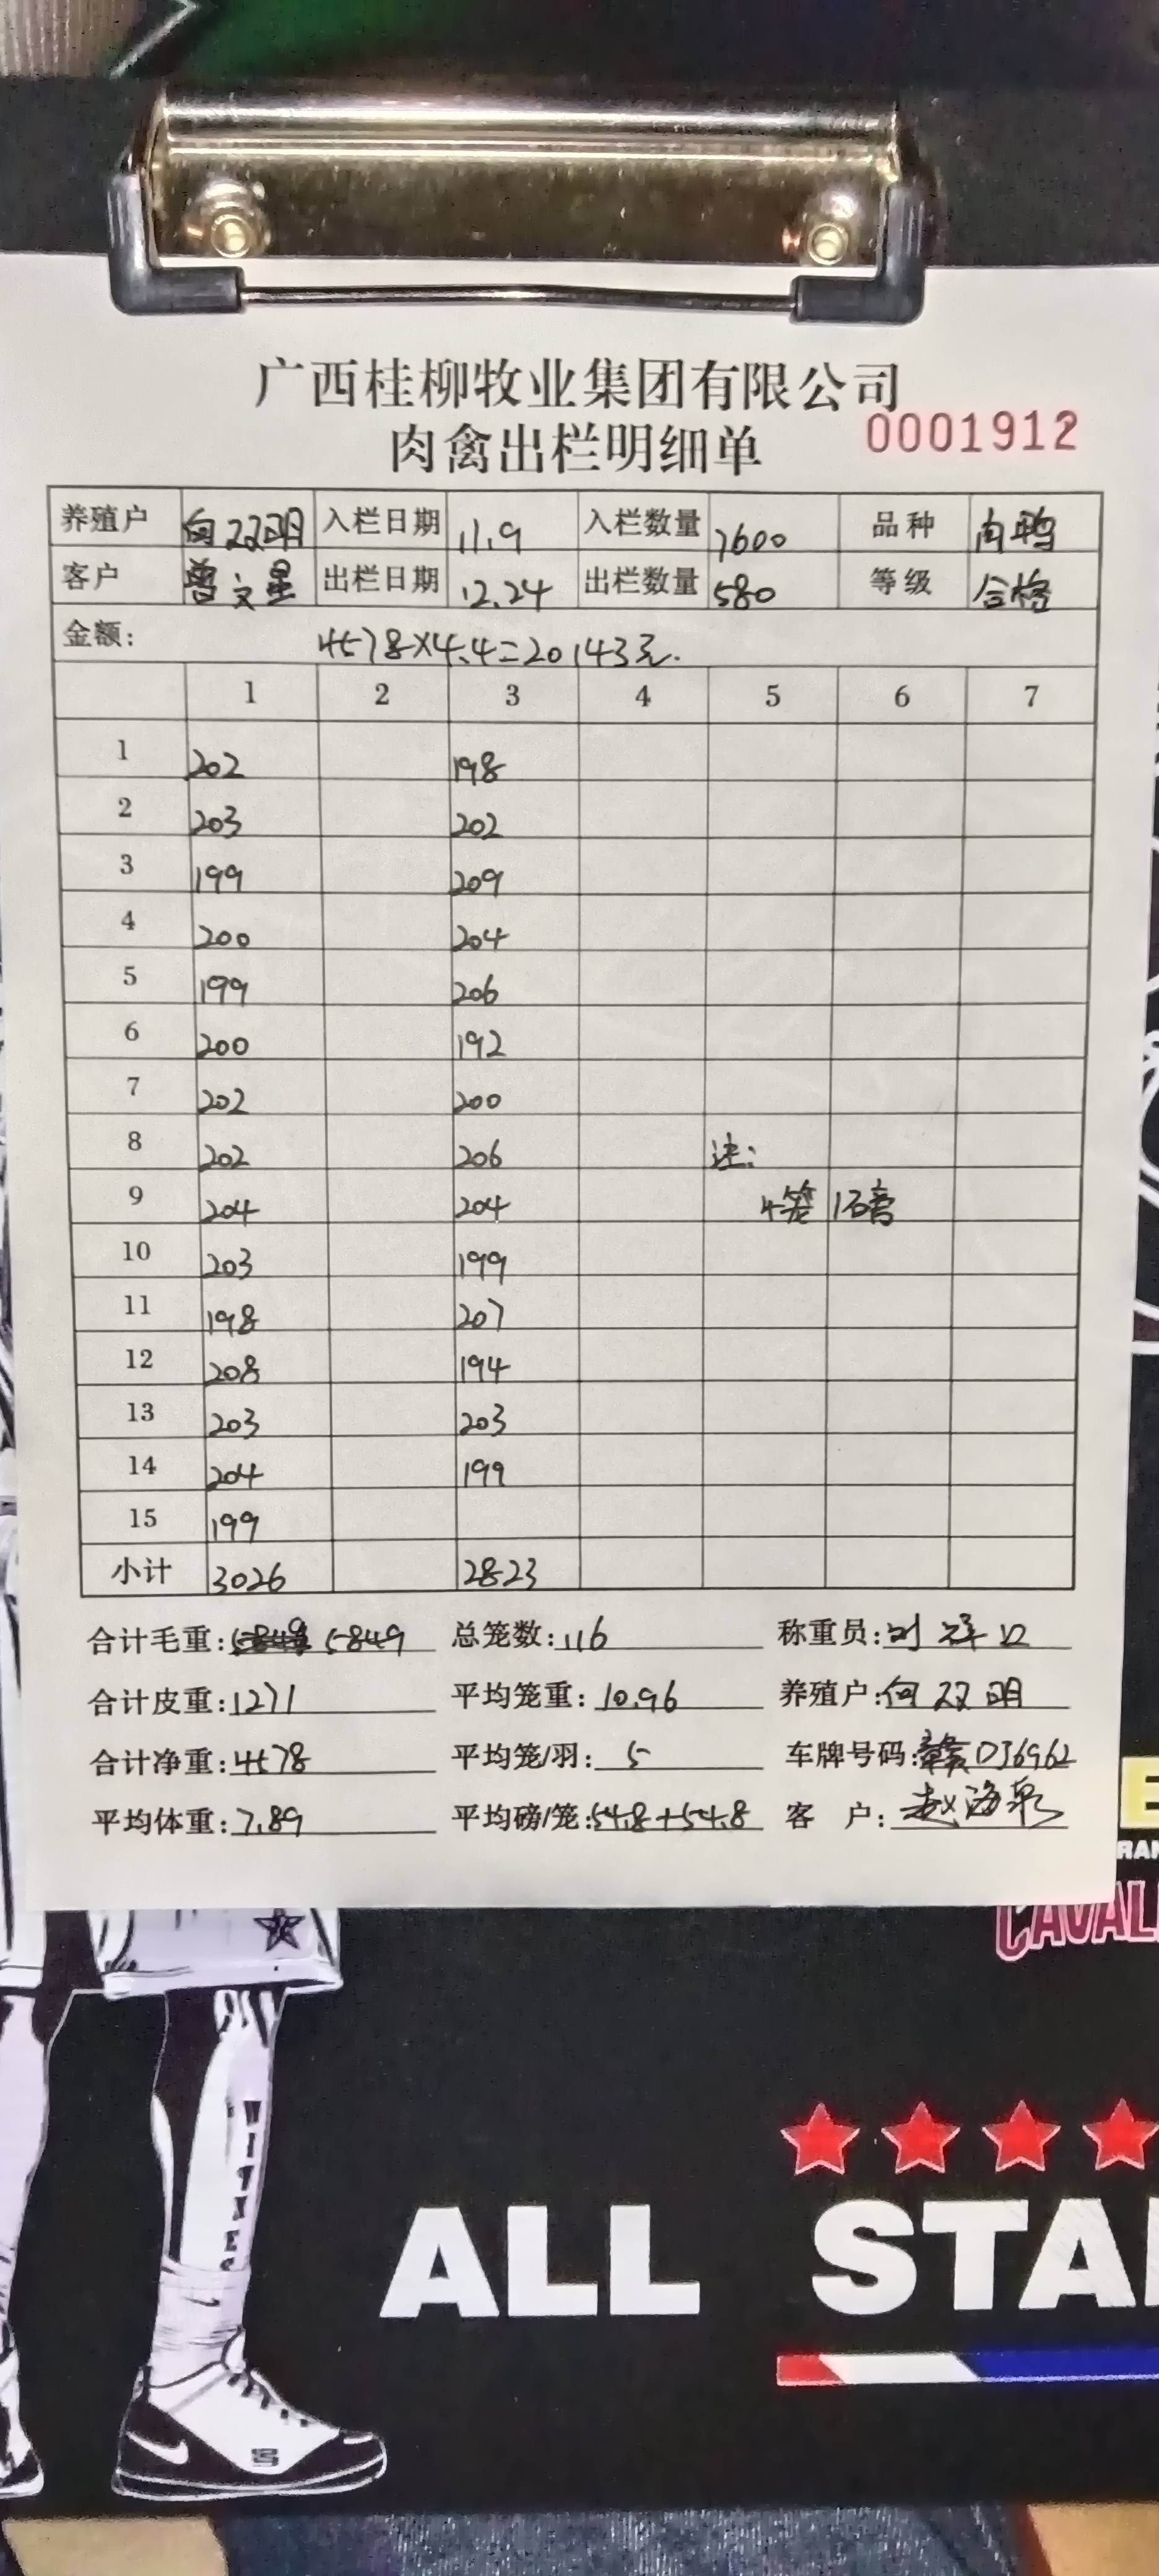 广西桂柳牧业集团有限公司
肉禽出栏明细单 0001912
养殖户 向双明 入栏日期 11.9 入栏数量 7600 品种 肉鸭
客户 曾文星 出栏日期 12.24 出栏数量 580 等级 合格
金额: 4578×4.4=20143元.
1 2 3 4 5 6 7
1 202 198
2 203 202
3 199 209
4 200 204
5 199 206
6 200 192
7 202 200
8 202 206 注:
9 204 204 4笼1磅
10 203 199
11 198 207
12 208 194
13 203 203
14 204 199
15 199
小计 3026 2823
合计毛重: 5849 总笼数: 116 称重员:
合计皮重: 1271 平均笼重: 10.96 养殖户: 向双明
合计净重: 4578 平均笼/羽: 5 车牌号码: 赣D36962
平均体重: 7.89 平均磅/笼: 54.8+54.8 客 户: 赵海泉
CAVAL
ALL STA